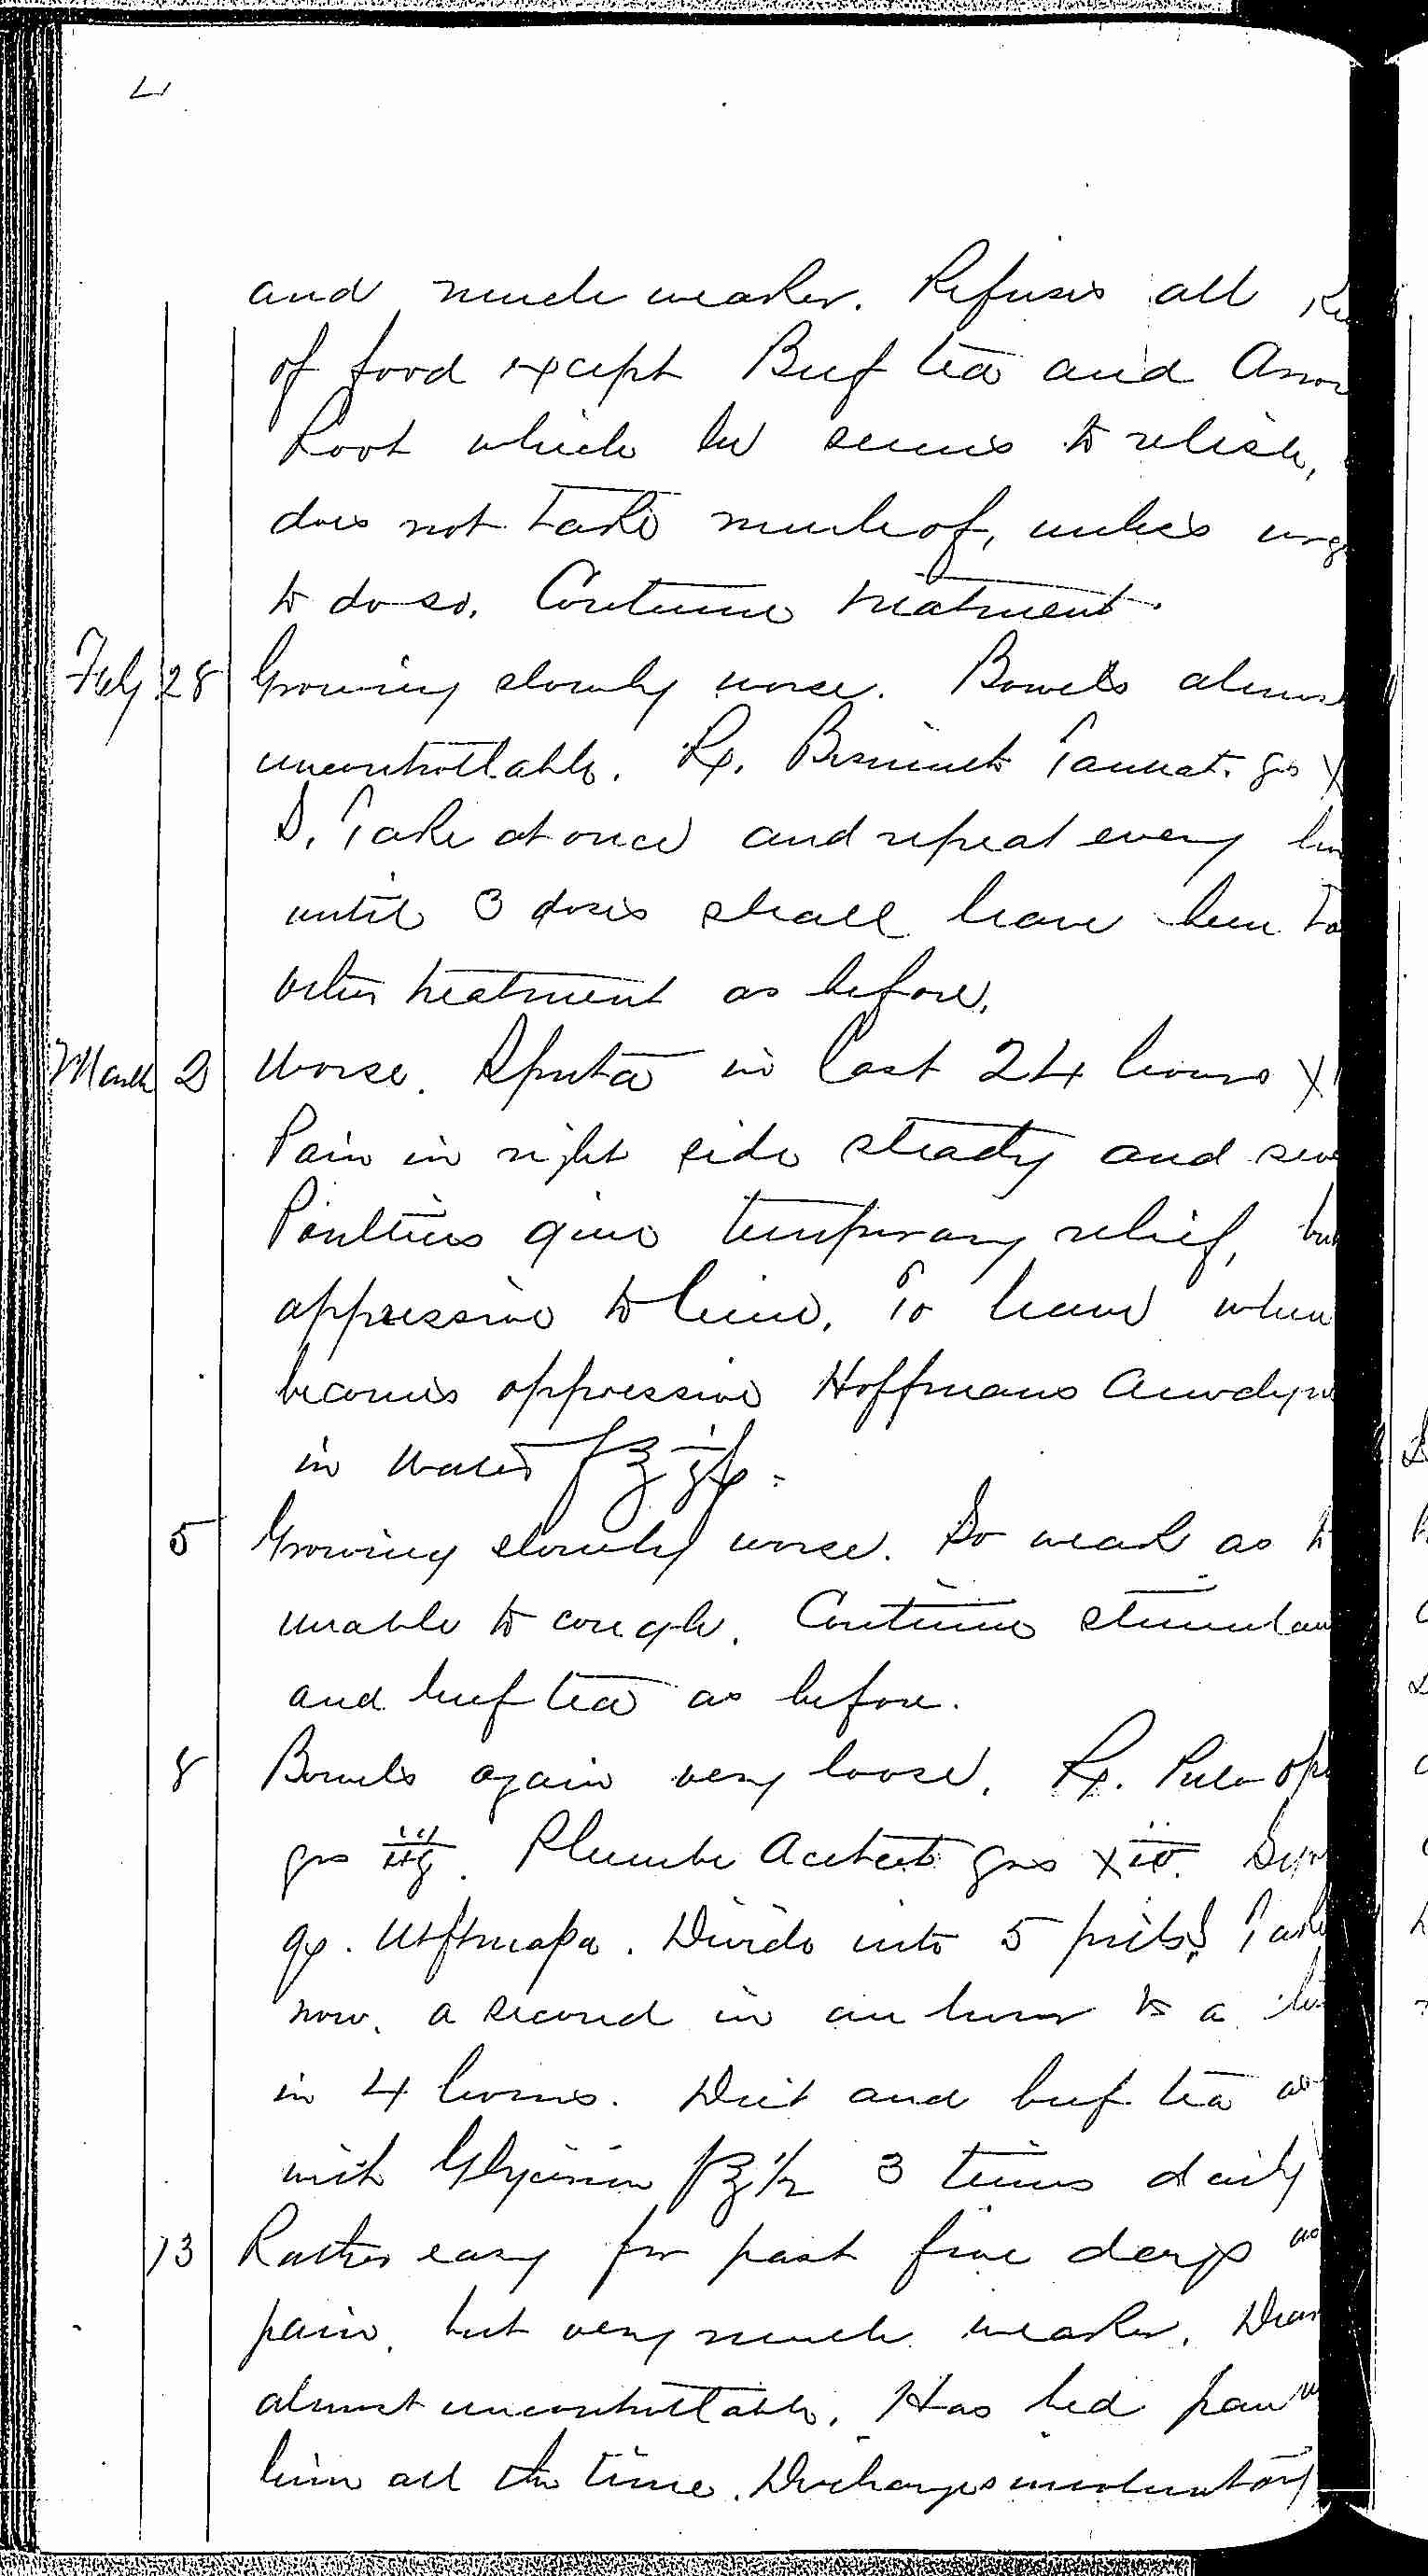 and much weaker. Refuses all
of food except Beef tea and Arrow
Root which he seems to relish,
does not take much of, unless urge
to do so. Continue treatment.
Feby 28 Growing slowly worse. Bowels almost
uncontrollable. Rx. Bismuth Tannat. grs X
S. Take at once and repeat every hou
until 3 doses shall have been ta
other treatment as before.
March 2 Worse. Sputa in last 24 hours X
Pain in right side steady and seve
Poultices give temporary relief, but
oppressive to him. To have when
becomes oppressive Hoffmans Anodyne
in water f℥
5 Growing slowly worse. So weak as to
unable to cough. Continue stimulan
and beef tea as before.
8 Bowels again very loose. Rx. Pulv Opi
grs iij. Plumbi Acetat grs Syr
qs. Divide into 5 pills. Take
now, a second in an hour & a thi
in 4 hours. Diet and beef tea as
with Glycerin f℥ ½ 3 times daily
13 Rather easy for past five days as
pain, but very much weaker.
almost uncontrollable. Has bed pan
him all the time. Discharges involuntary